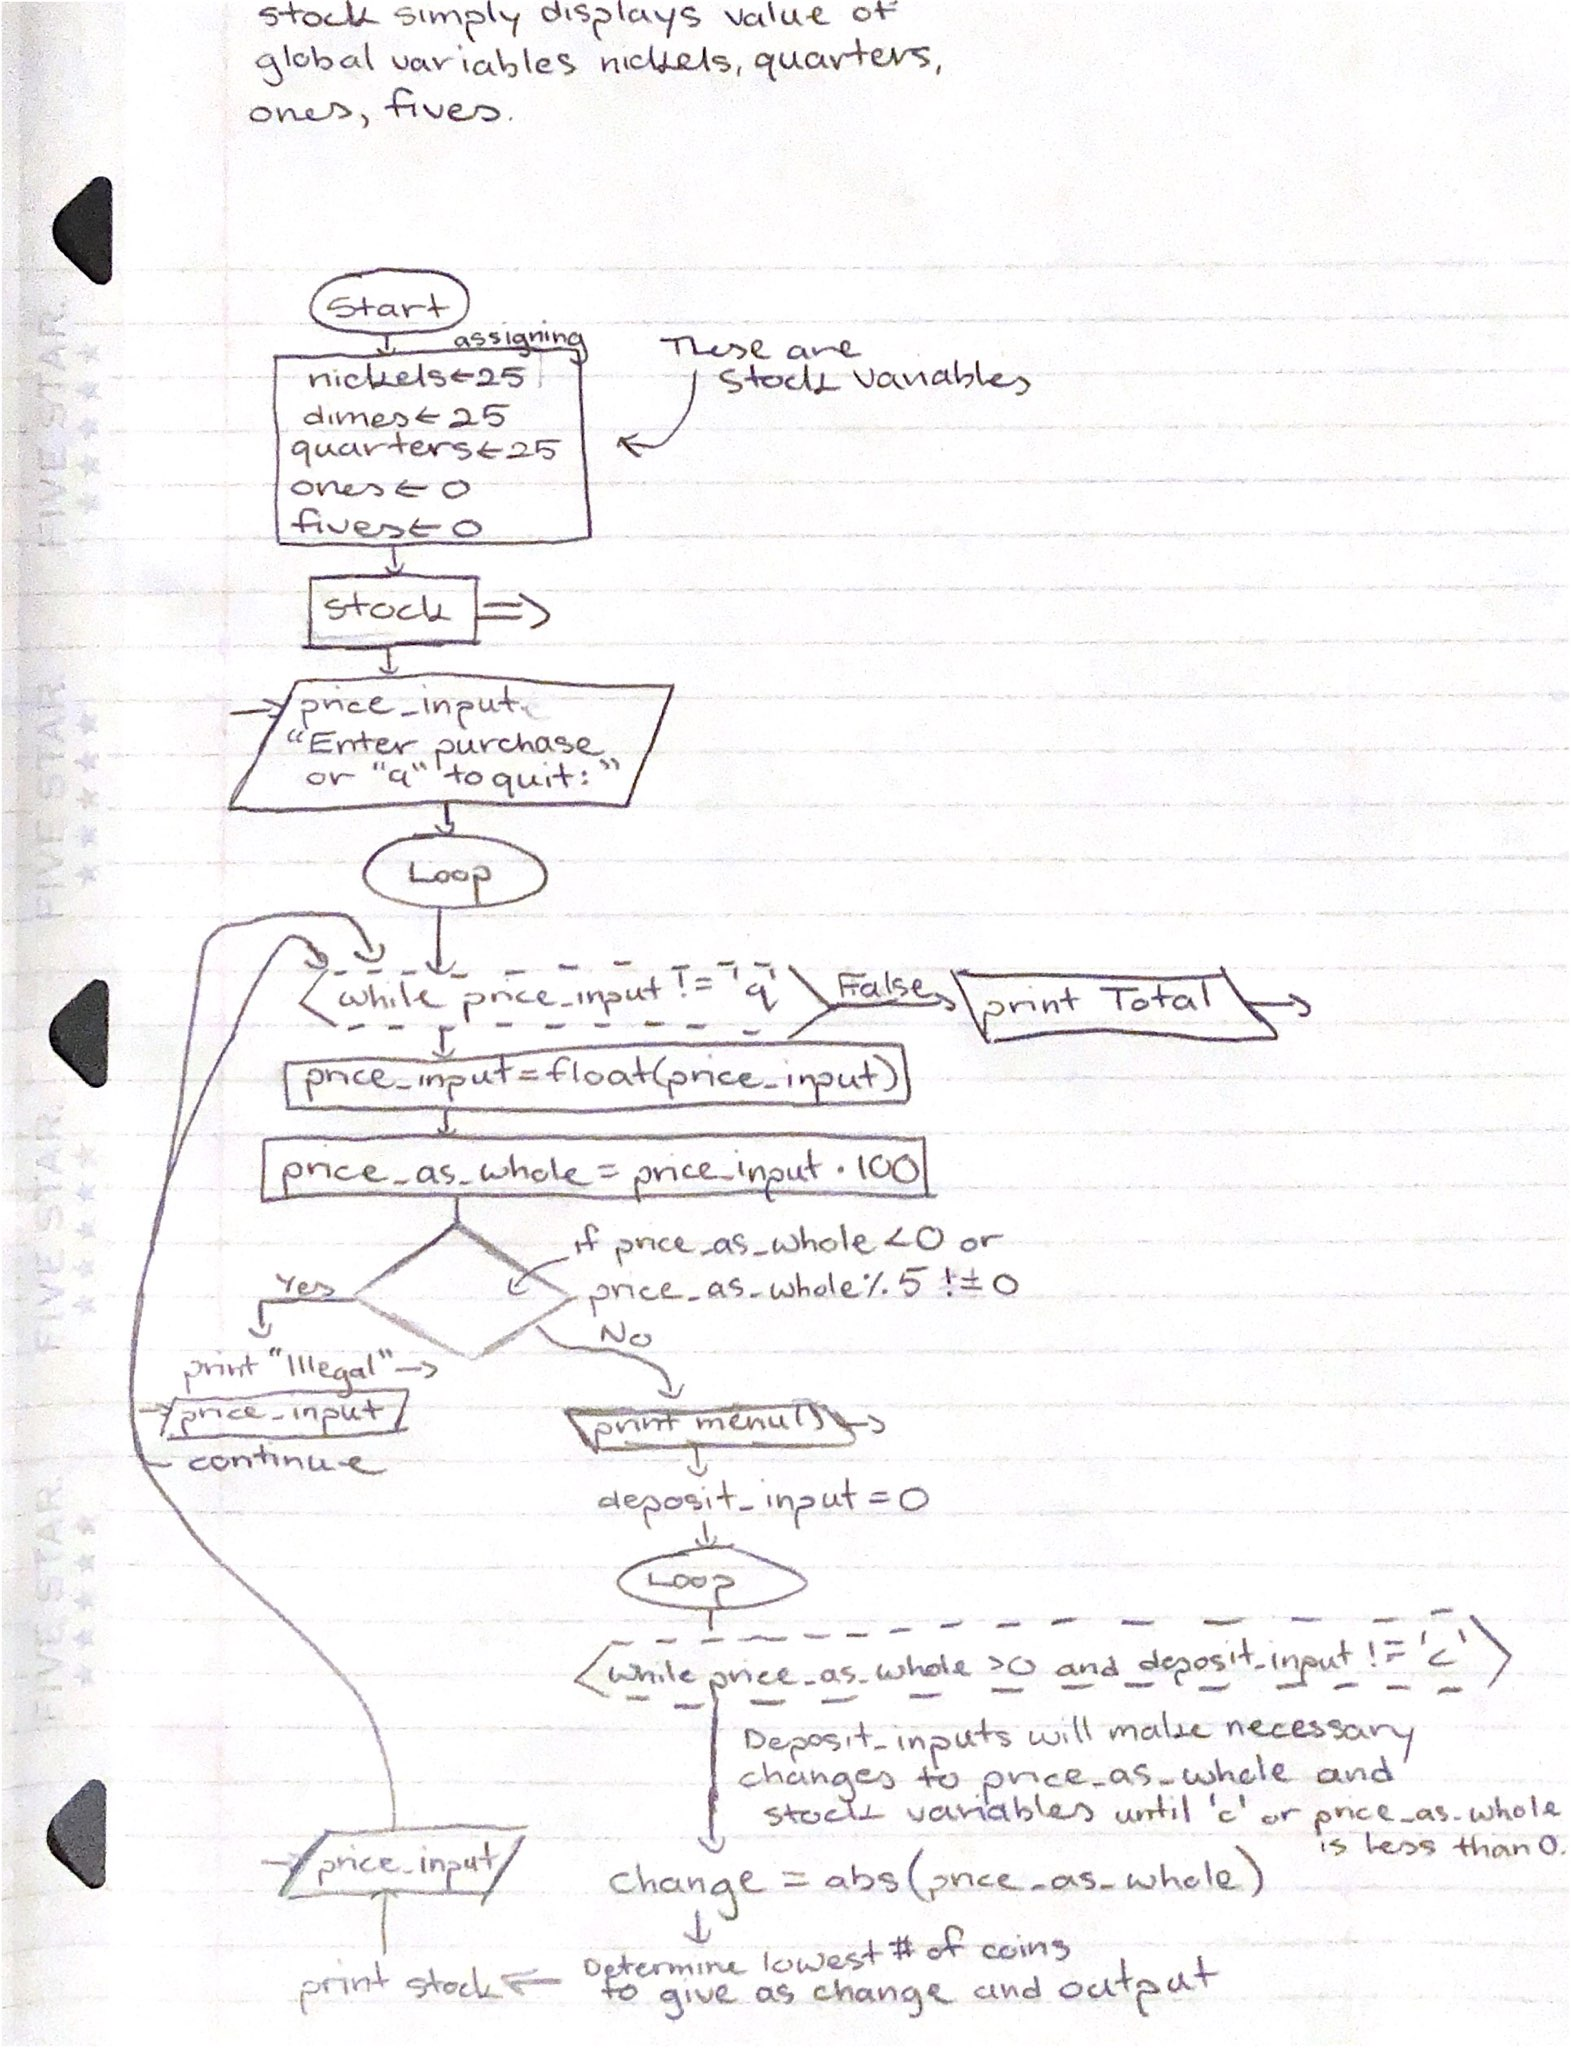 stock simply displays value of
global variables nickels, quarters,
ones, fives.
Start
assigning
nickels←25
dimes←25
quarters←25
ones←0
fives←0
These are
stock variables
stock
price_input
"Enter purchase
or "q" to quit:"
Loop
while price_input != 'q'
False
print Total
price_input=float(price_input)
price_as_whole = price_input · 100
if price_as_whole <0 or
price_as_whole % 5 != 0
Yes
No
print "Illegal"
price_input
continue
print menu()
deposit_input = 0
Loop
while price_as_whole >0 and deposit_input != 'c'
Deposit_inputs will make necessary
changes to price_as_whole and
stock variables until 'c' or price_as_whole
is less than 0.
price_input
change = abs(price_as_whole)
Determine lowest # of coins
to give as change and output
print stock
FIVE STAR
FIVE STAR
FIVE STAR
FIVE STAR
FIVE STAR